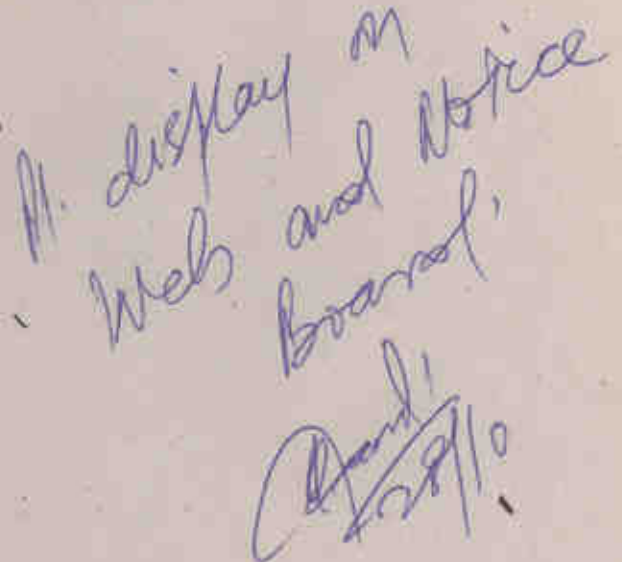 Pl. display on
Web and Notice
Board.
28/10